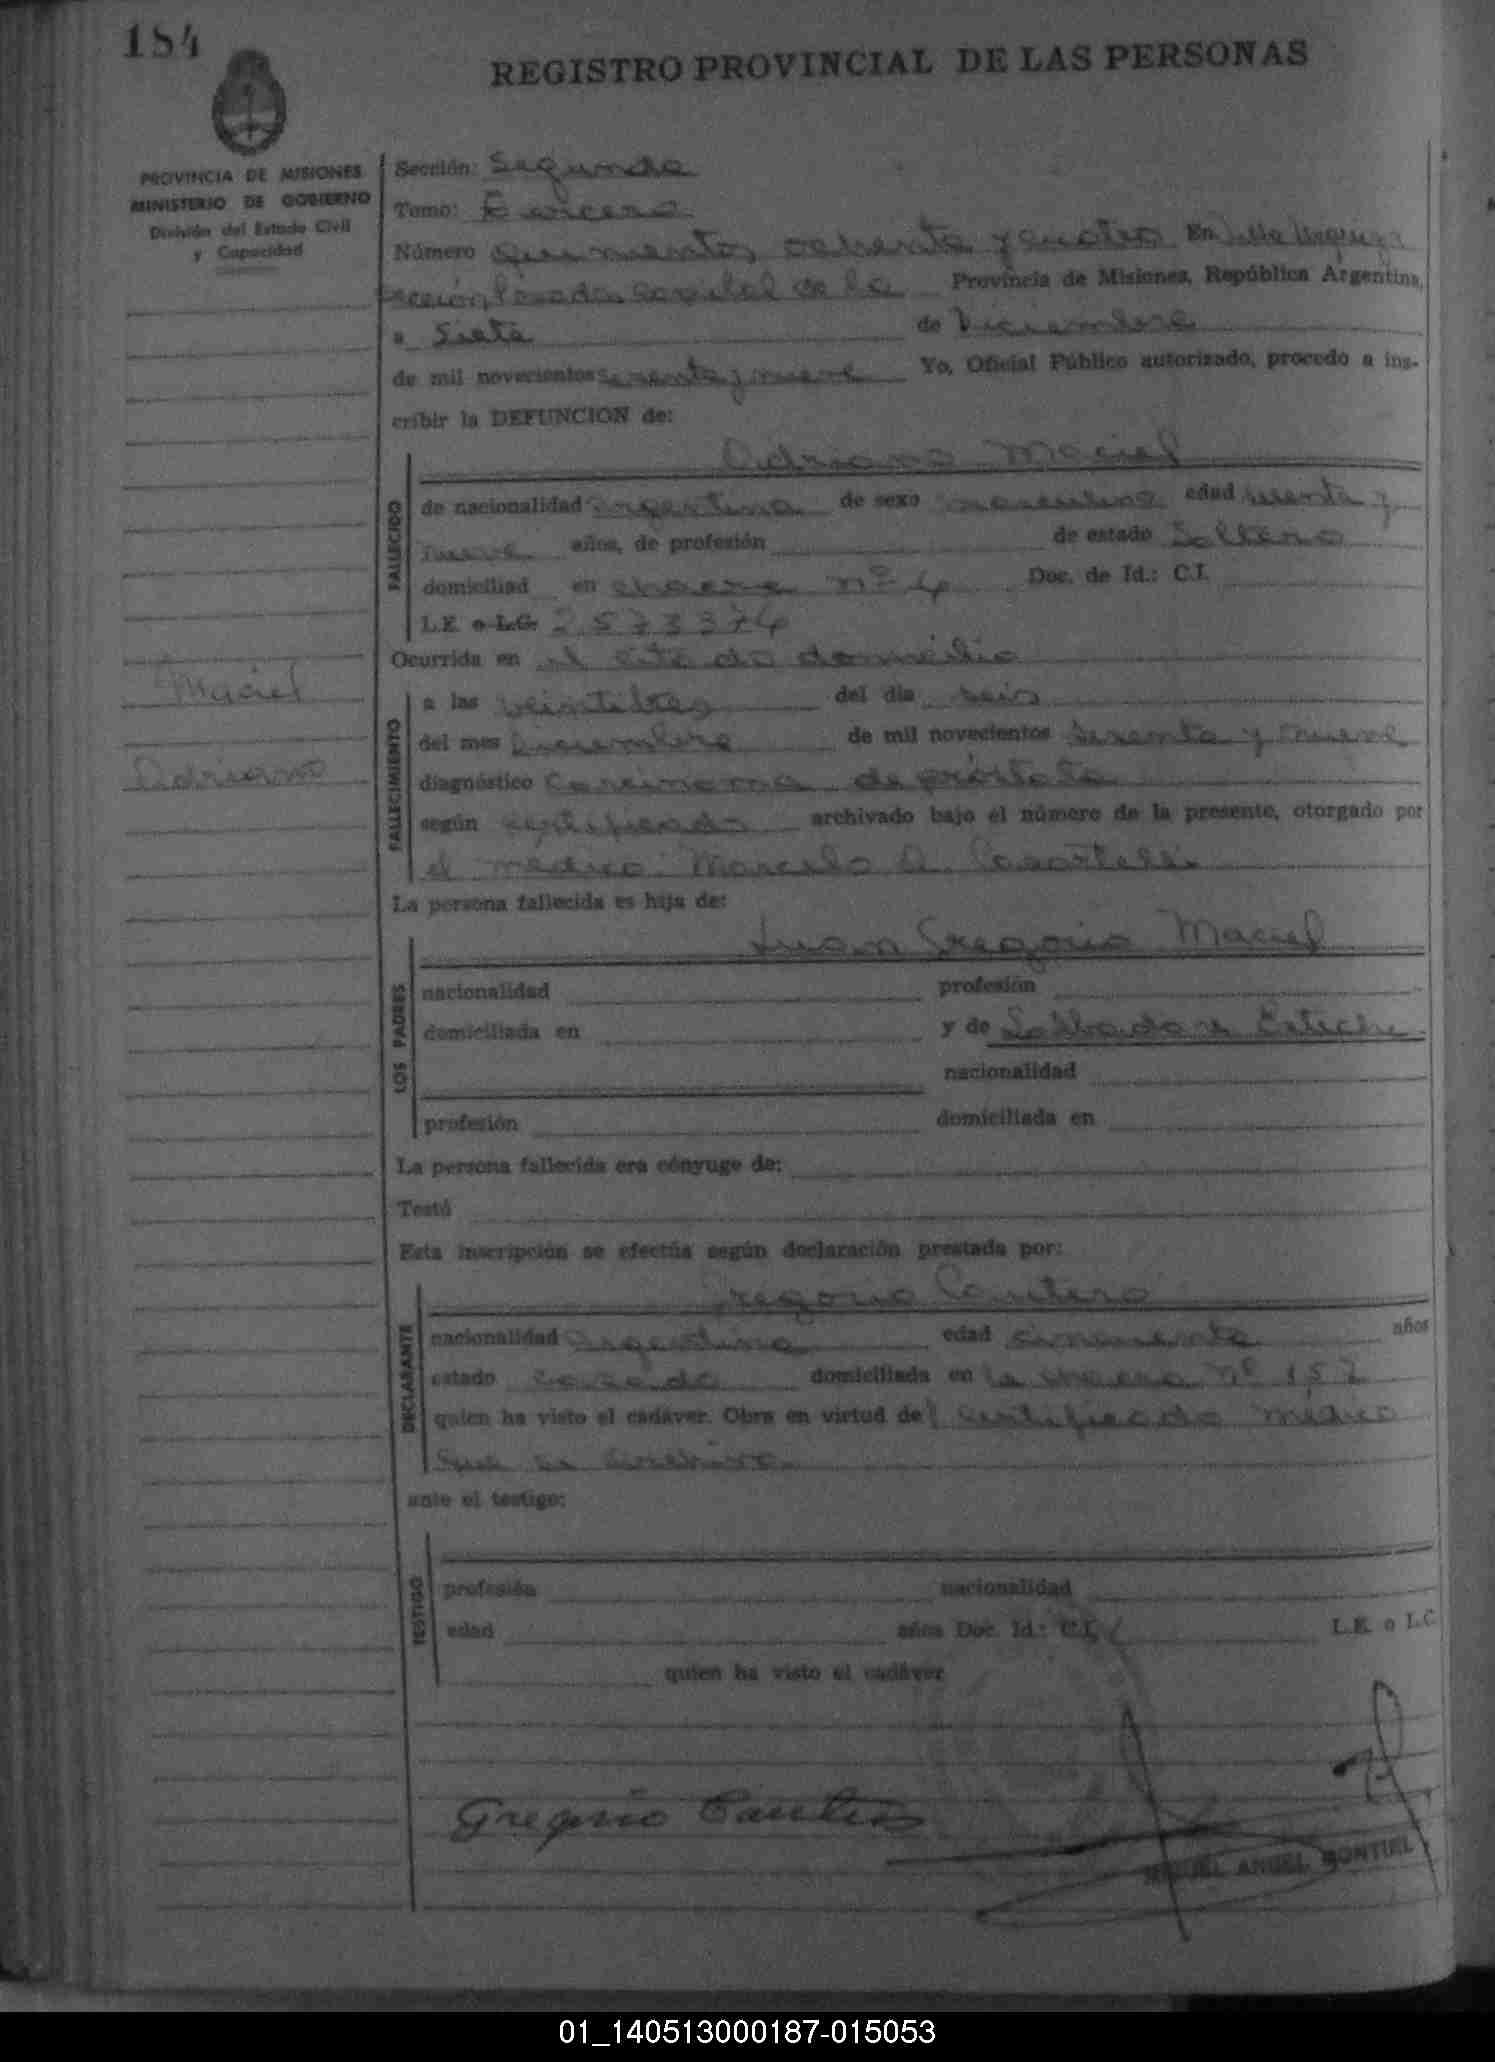 184
REGISTRO PROVINCIAL DE LAS PERSONAS
PROVINCIA DE MISIONES
MINISTERIO DE GOBIERNO
División del Estado Civil
y Capacidad
Sección: Segunda
Tomo: Tercero
Número quinientos ochenta y cuatro En Villa Urquiza
sección, Posadas Capital de la Provincia de Misiones, República Argentina,
a Siete de Diciembre
de mil novecientos sesenta y nueve Yo, Oficial Público autorizado, procedo a ins-
cribir la DEFUNCION de:
Adriano Maciel
FALLECIDO
de nacionalidad argentina de sexo masculino edad y
nueve años, de profesión de estado Soltero
domiciliad en chacra nº 4 Doc. de Id.: C.I.
L.E. o L.C. 2573374
Ocurrida en el citado domicilio
Maciel
Adriano
FALLECIMIENTO
a las veintitres del dia seis
del mes Diciembre de mil novecientos sesenta y nueve
diagnóstico Carcinoma de próstata
según certificado archivado bajo el número de la presente, otorgado por
el médico: Marcelo A.
La persona fallecida es hija de:
Juan Gregorio Maciel
LOS PADRES
nacionalidad profesión
domiciliada en y de Esteche
nacionalidad
profesión domiciliada en
La persona fallecida era cónyuge de:
Testó
Esta inscripción se efectúa según declaración prestada por:
Gregorio Cantero
DECLARANTE
nacionalidad argentina edad cincuenta años
estado casado domiciliada en la chacra nº 152
quien ha visto el cadáver. Obra en virtud del certificado médico
que se archiva.
ante el testigo:
TESTIGO
profesión nacionalidad
edad años Doc. Id.: C.I. L.E. o L.C.
quien ha visto el cadáver
Gregorio Cantero
MIGUEL ANGEL MONTIEL
01_140513000187-015053